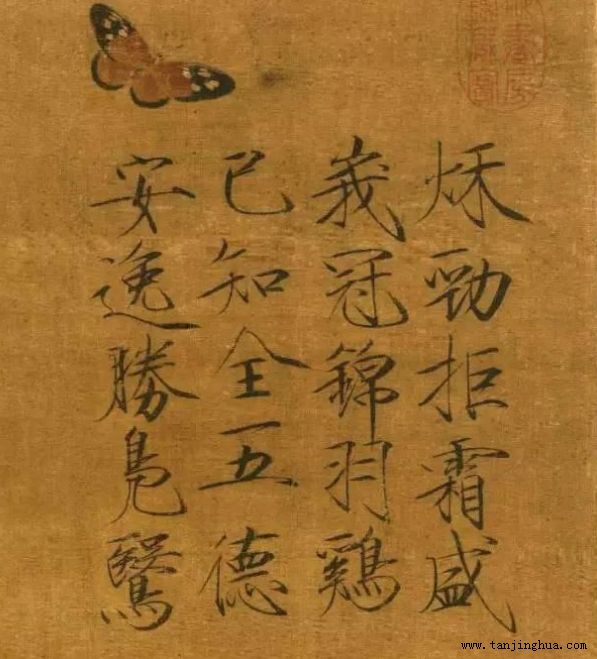 秌勁拒霜盛
峩冠錦羽鷄
已知全五德
安逸勝鳧鷖
www.tanjinghua.com